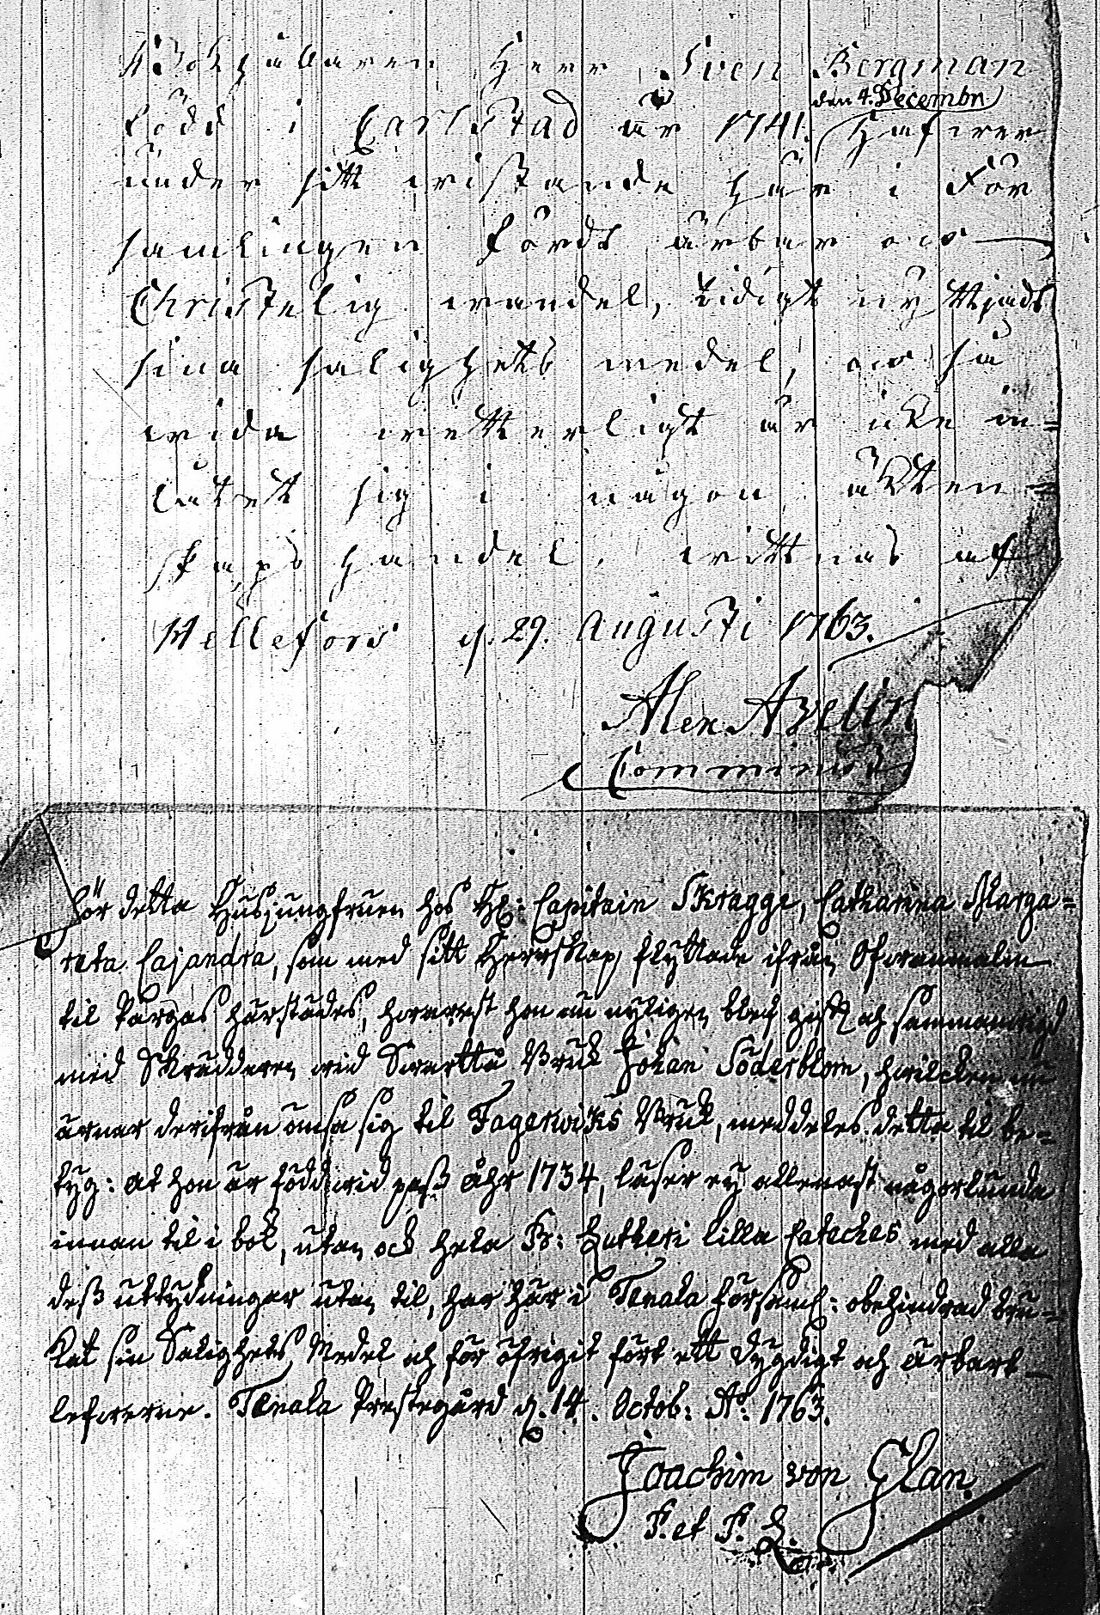 Bokhållaren Herr Sven Bergman
den 4. Decembr
född i Carlstad år 1741. Hafwer
under sitt wistande här i För
samlingen fördt ärbar och
Christelig wandel, tidigt nyttjadt
sina salighets medel, och så
wida wetterligt är icke in=
låtet sig i någon äckten=
skaps handel, wittnas af
Hellefors d. 29. Augusti 1763.
Alex Avelin
Comminist
För detta Husjungfruen hos H: Capitain Skragge, Catharina Marga=
reta Cajandra, som med sitt Herrskap flyttade ifrån
til Pargas härstädes, hwarest hon nu nyligen blef gift och sammanwigd
med Skräddaren wid Swartå Bruk Johan Söderblom, hwilcken nu
ärnar derifrån omsa sig til Fagerwicks Bruk, meddeles detta til be=
tyg: at hon är född wid pass åhr 1734, läser ey allenast någorlunda
innan til i bok, utan ock hela D: Lutheri lilla Cateches med alla
dess uttydningar utan til, har här i Tenala församl: obehindrad bru=
kat sin Salighets Medel och för öfrigit fört ett dygdigt och ärbart
lefwerne. Tenala Prestegård d. 14. Octob: Ao: 1763.
Joachim von Glan.
P. et P. L.